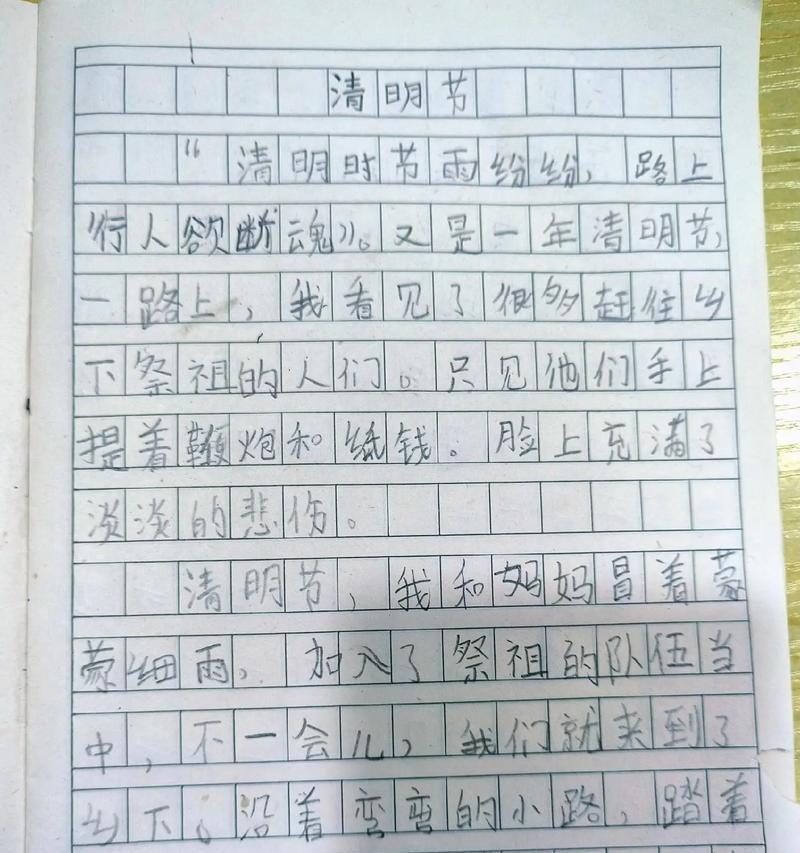 清明节
“清明时节雨纷纷,路上
行人欲断魂”。又是一年清明节,
一路上,我看见了很多赶往乡
下祭祖的人们。只见他们手上
提着鞭炮和纸钱。脸上充满了
淡淡的悲伤。
清明节,我和妈妈冒着蒙
蒙细雨,加入了祭祖的队伍当
中,不一会儿,我们就来到了
乡下。沿着弯弯的小路,踏着